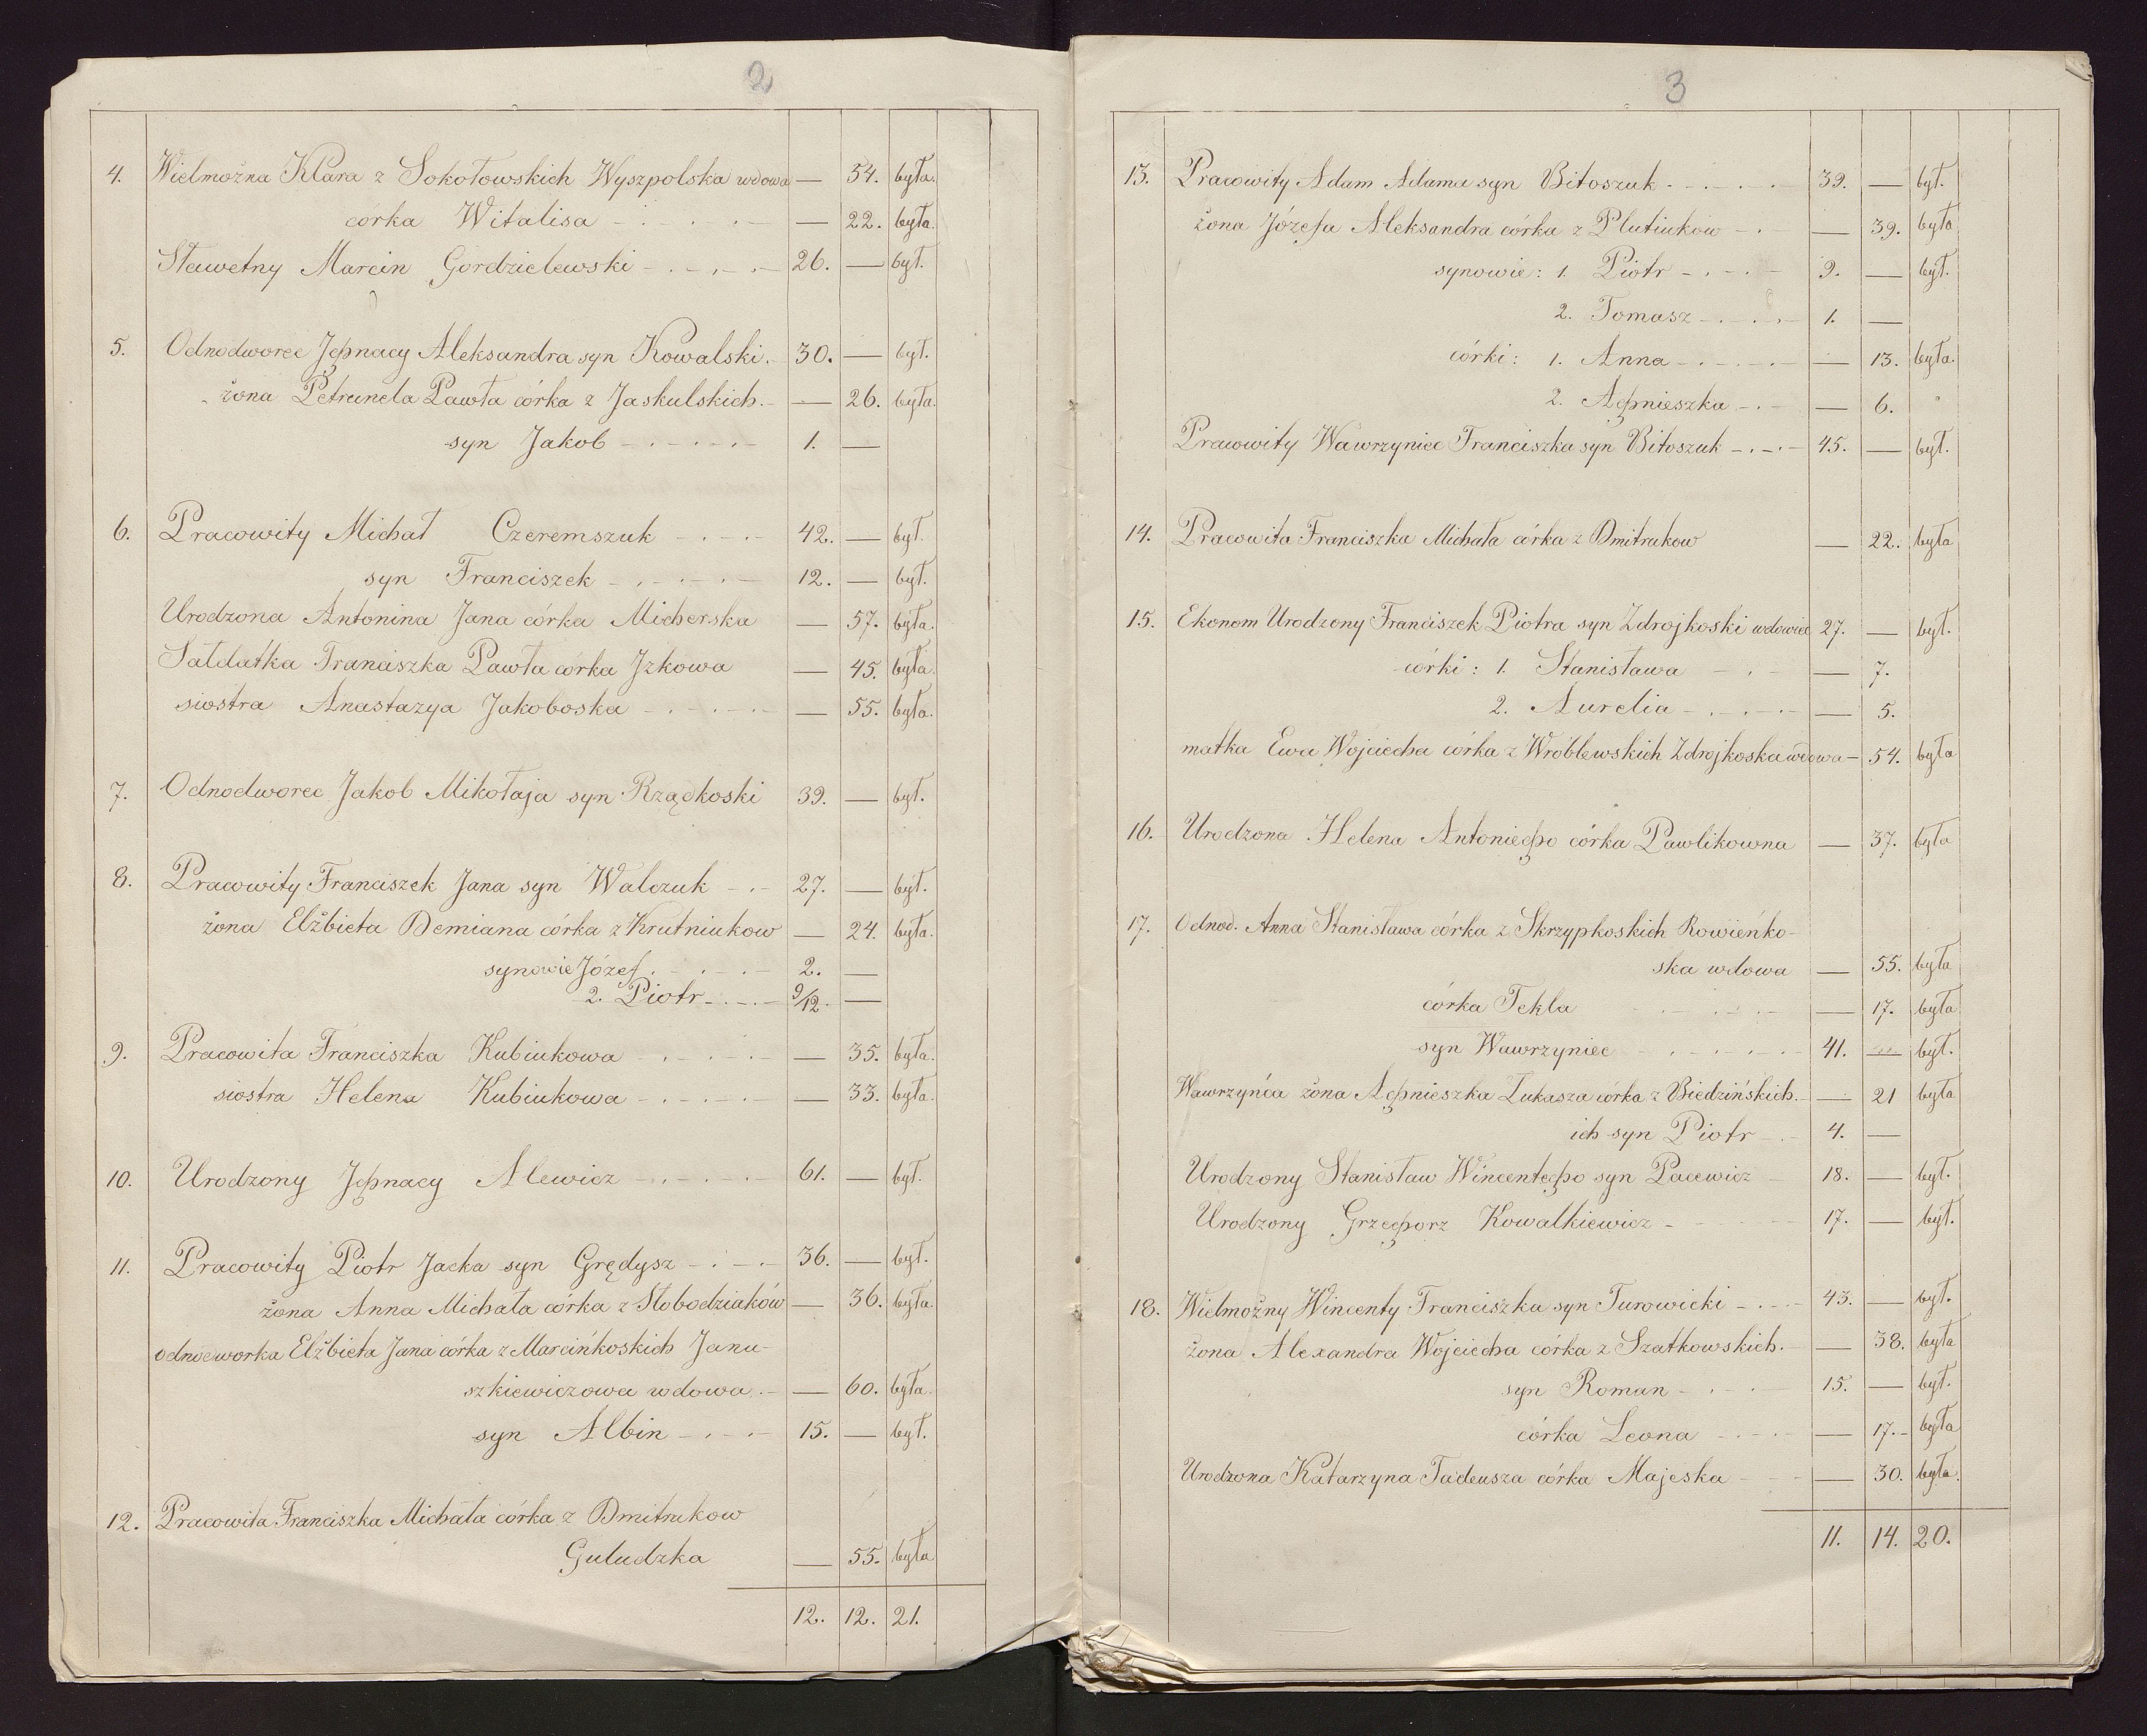 2
4. Wielmożna Klara z Sokołowskich Wyszpolska wdowa — 54. była.
córka Witalisa — 22. była.
Sławetny Marcin Gordzielewski 26. — był.
5. Odnodworec Jgnacy Aleksandra syn Kowalski. 30. — był.
żona Petrunela Pawła córka z Jaskulskich. — 26. była.
syn Jakob 1. —
6. Pracowity Michał Czeremszuk 42. — był.
syn Franciszek 12. — był.
Urodzona Antonina Jana córka Micherska — 57. była.
Sałdatka Franciszka Pawła córka Jzkowa — 45. była.
siostra Anastazya Jakoboska — 55. była.
7. Odnodworec Jakob Mikołaja syn Rządkoski 39. — był.
8. Pracowity Franciszek Jana syn Walczuk 27. — był.
żona Elżbieta Demiana córka z Krutniukow — 24. była.
synowie Józef 2. —
2. Piotr 9/12. —
9. Pracowita Franciszka Kubiukowa — 35. była.
siostra Helena Kubiukowa — 33. była.
10. Urodzony Jgnacy Alewicz 61. — był.
11. Pracowity Piotr Jacka syn Grędysz 36. — był.
żona Anna Michała córka z Słobodziaków — 36. była.
odnodworka Elżbieta Jana córka z Marcińkoskich Janu-
szkiewiczowa wdowa. — 60. była.
syn Albin 15. — był.
12. Pracowita Franciszka Michała córka z Dmitrukow
Guludzka — 55. była
12. 12. 21.
3
13. Pracowity Adam Adama syn Bitoszuk 39. — był.
żona Józefa Aleksandra córka z Plutiukow — 39. była
synowie: 1. Piotr 9. — był.
2. Tomasz 1. —
córki: 1. Anna — 13. była.
2. Agnieszka — 6. "
Pracowity Wawrzyniec Franciszka syn Bitoszuk 45. — był.
14. Pracowita Franciszka Michała córka z Dmitrukow — 22. była
15. Ekonom Urodzony Franciszek Piotra syn Zdrojkoski wdowiec 27. — był.
córki: 1. Stanisława — 7.
2. Aurelia — 5.
matka Ewa Wojciecha córka z Wróblewskich Zdrojkoska wdowa — 54. była
16. Urodzona Helena Antoniego córka Pawlikowna — 37. była
17. Odnod. Anna Stanisława córka z Skrzypkoskich Rowieńko-
ska wdowa — 55. była
córka Tekla — 17. była
syn Wawrzyniec 41. — był.
Wawrzyńca żona Agnieszka Łukasza córka z Biedzińskich. — 21 była
ich syn Piotr 4. —
Urodzony Stanisław Wincentego syn Pacewicz 18. — był.
Urodzony Grzegorz Kowalkiewicz 17. — był.
18. Wielmożny Wincenty Franciszka syn Turowicki 43. — był.
żona Alexandra Wojciecha córka z Szatkowskich. — 38. była
syn Roman 15. — był.
córka Leona — 17. była
Urodzona Katarzyna Tadeusza córka Majeska — 30. była.
11. 14. 20.